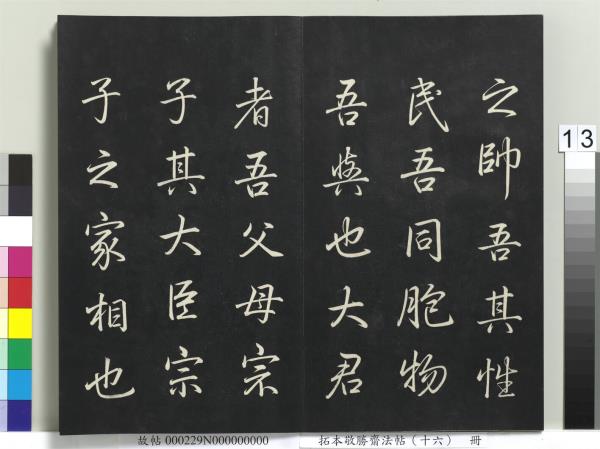 之帥吾其性
民吾同胞物
吾與也大君
者吾父母宗
子其大臣宗
子之家相也
13
故帖 000229N000000000 拓本敬勝齋法帖(十六) 冊